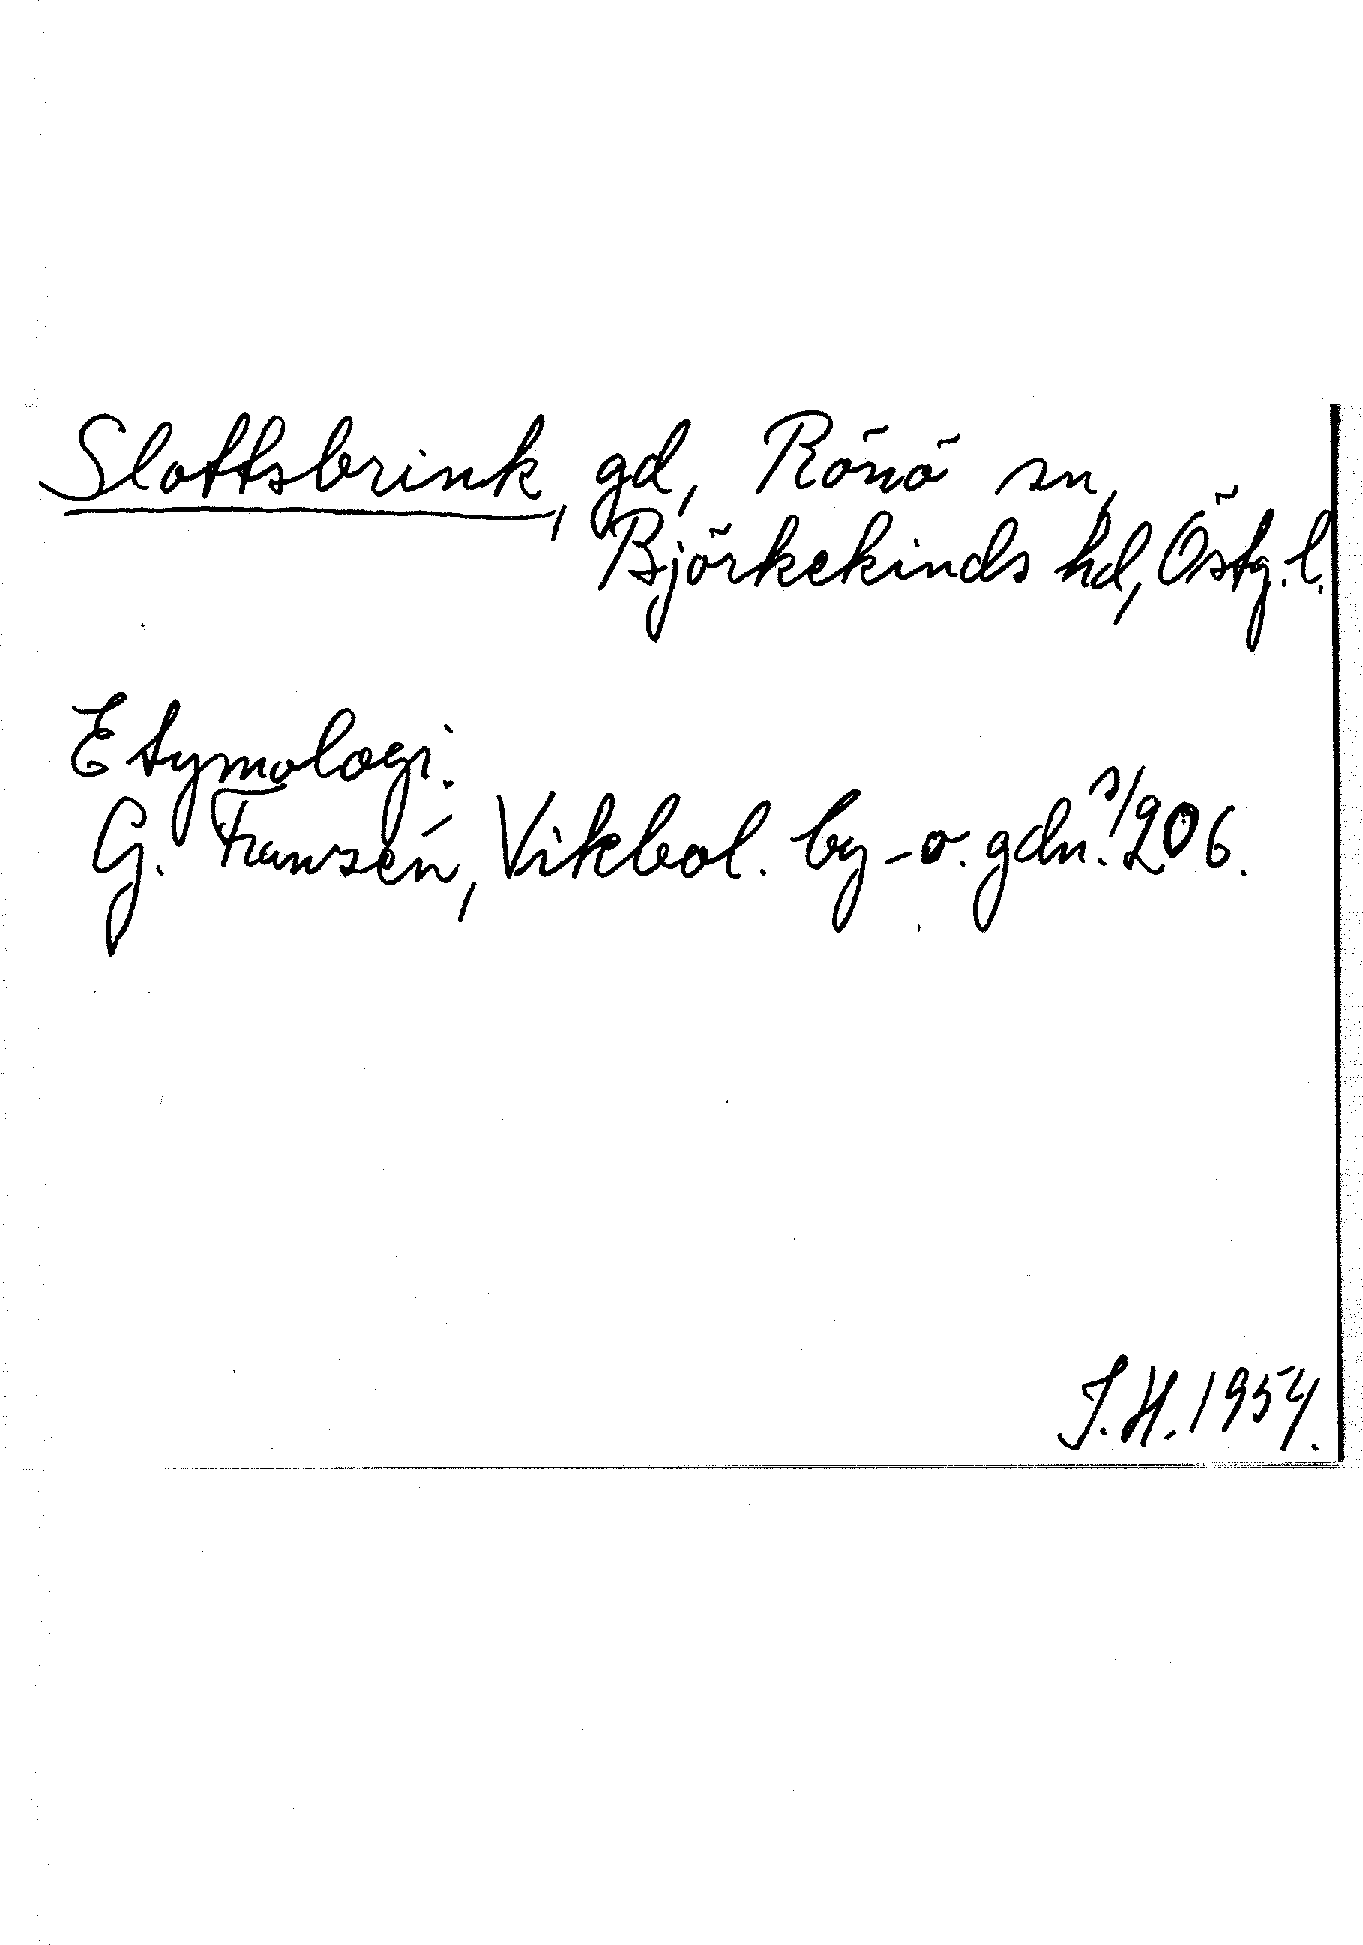 Slottsbrink, gd, Rönö sn,
Björkekinds hd, Östg. l.
Etymologi.
G. Franzén, Vikbol. by- o. gdn. s/206.
J. H. 1954.